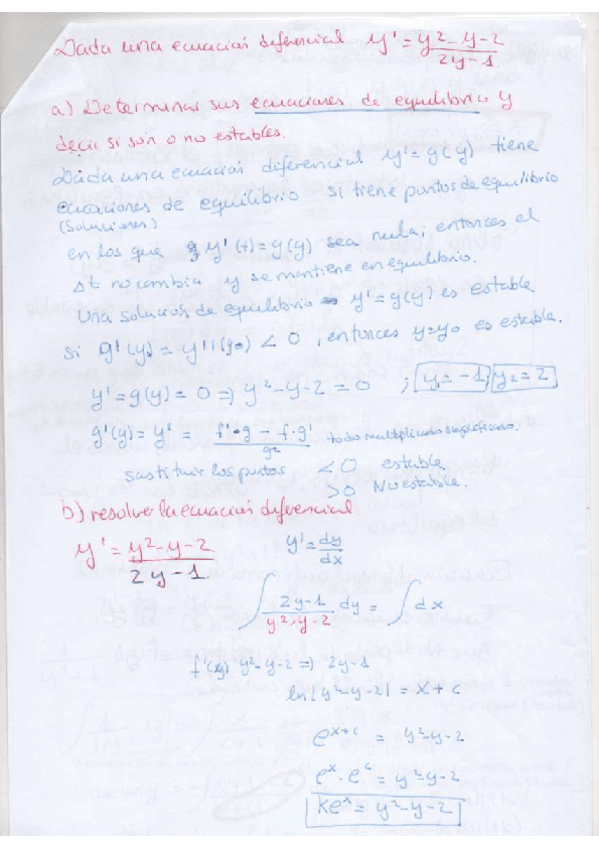 Dada una ecuación diferencial y' = y²-y-2 / 2y-1
a) Determinar sus ecuaciones de equilibrio y
decir si son o no estables.
Dada una ecuación diferencial y'=g(y) tiene
ecuaciones de equilibrio si tiene puntos de equilibrio
(Soluciones)
en los que y'(t)=g(y) sea nula, entonces el
Δt no cambia y se mantiene en equilibrio.
Una solución de equilibrio y'=g(y) es estable
si g'(y0) = y''(y0) < 0, entonces y=y0 es estable.
y'=g(y)=0 ⇒ y²-y-2=0 ; y1=-1; y2=2
g'(y)= y''= f'·g - f·g' / g² todo multiplicado simplificamos.
sustituir los puntos < 0 estable
> 0 No estable.
b) resolver la ecuación diferencial
y' = y²-y-2 / 2y-1 y' = dy/dx
∫ 2y-1 / y²-y-2 dy = ∫ dx
f'(y) y²-y-2 ⇒ 2y-1
ln|y²-y-2| = x+c
e^x+c = y²-y-2
e^x · e^c = y²-y-2
Ke^x = y²-y-2